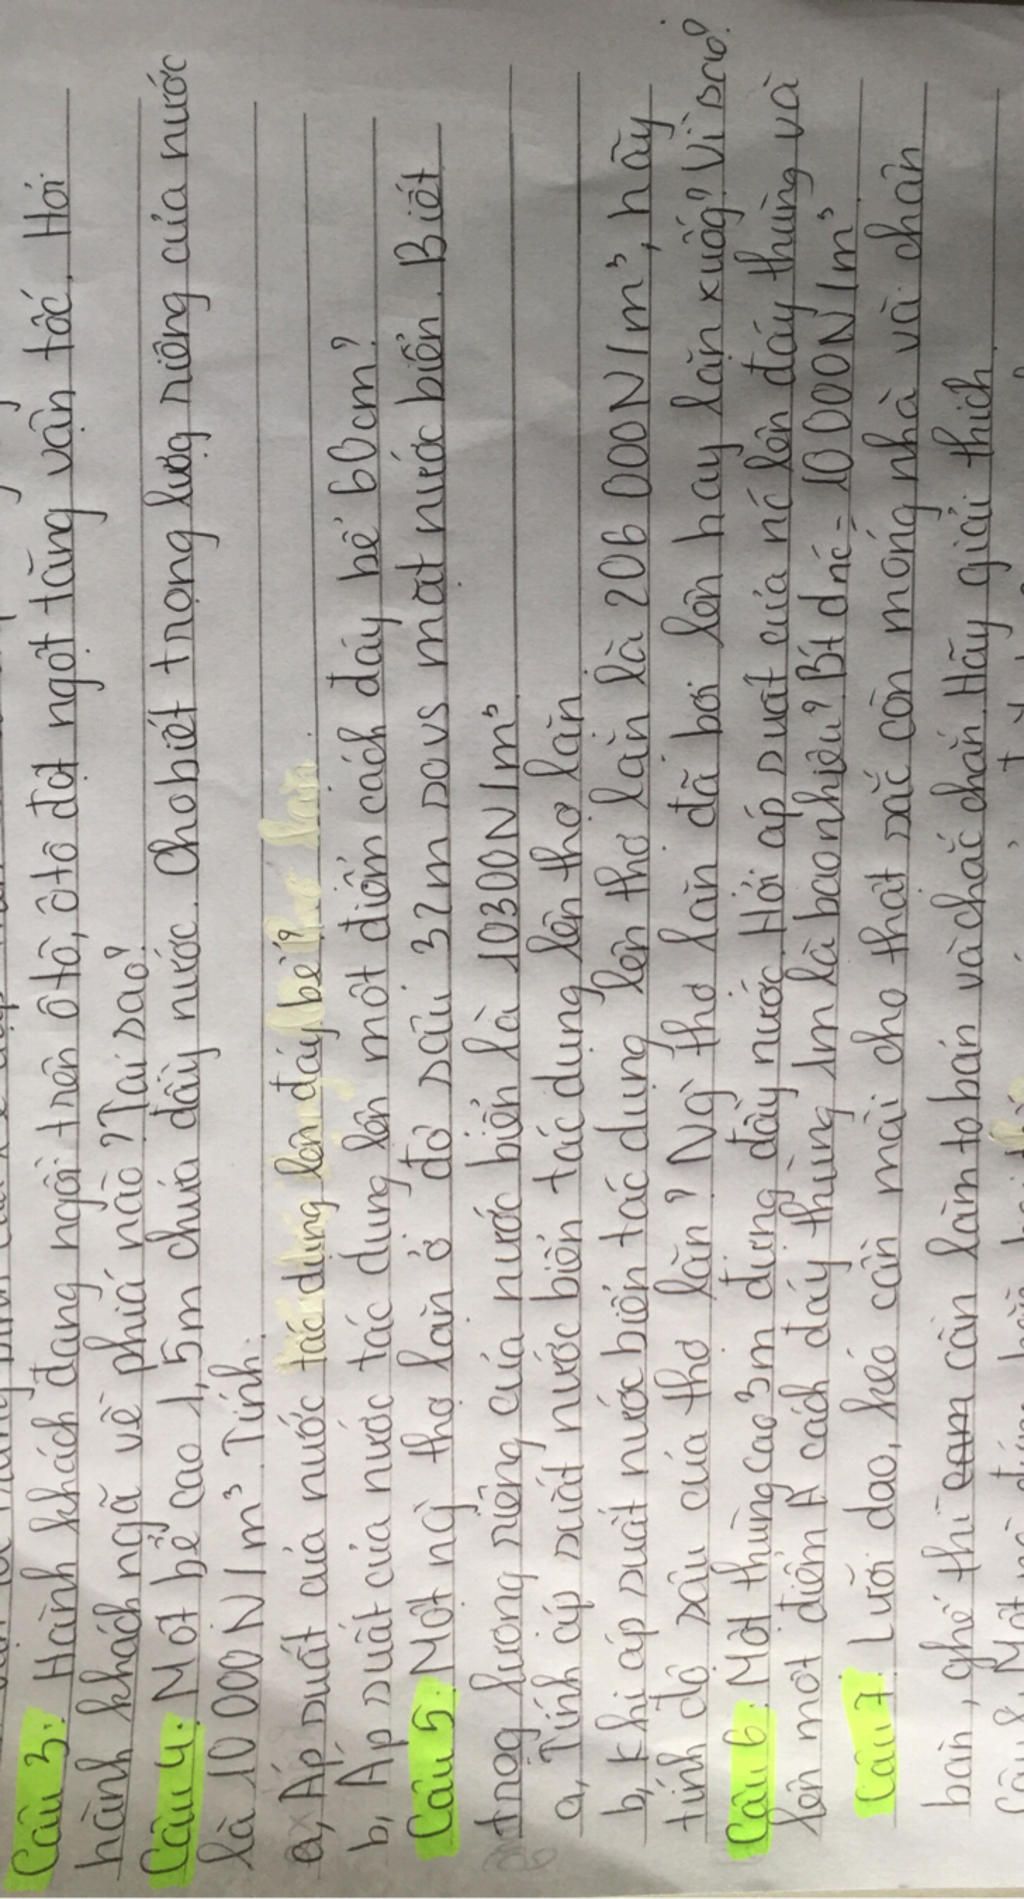 Câu 3: Hành khách đang ngồi trên ô tô, ôtô đột ngột tăng vận tốc. Hỏi
hành khách ngã về phía nào? Tại sao?
Câu 4: Một bể cao 1,5m chứa đầy nước. Cho biết trọng lượg riêng của nước
là 10 000 N/m³. Tính:
a, Áp suất của nước tác dụng lên đáy bể?
b, Áp suất của nước tác dụng lên một điểm cách đáy bể 60cm?
Câu 5: Một ng` thợ lặn ở độ sâu 32m so vs mặt nước biển. Biết
trọg lượng riêng của nước biển là 10300N/m³
a, Tính áp suất nước biển tác dụng lên thợ lặn
b, Khi áp suất nước biển tác dụng lên thợ lặn là 206 000N/m³, hãy
tính độ sâu của thợ lặn? Ng` thợ lặn đã bơi lên hay lặn xuốg? Vì sao?
Câu 6: Một thùng cao 3m đựng đầy nước. Hỏi áp suất của nó lên đáy thùng và
lên một điểm A cách đáy thùng 1m là bao nhiêu? Bt dnc = 10 000N/m³
Câu 7: Lưỡi dao, kéo cần mài cho thật sắc còn móng nhà và chân
bàn, ghế thì cần làm to bản và chắc chắn. Hãy giải thích